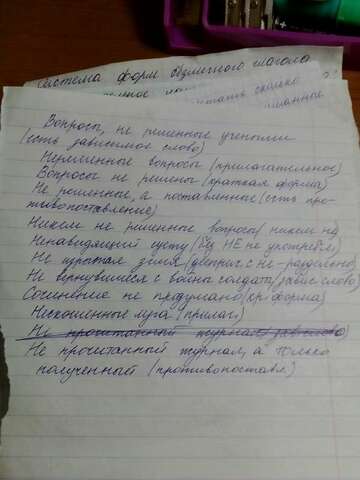 Система форм безличного глагола
Вопросы, не решенные учеными
(есть зависимое слово)
Нерешенные вопросы (прилагательное)
Вопросы не решены (краткая форма)
Не решенные, а поставленные (есть про-
тивопоставление)
Никем не решенные вопросы (никем не
Ненавидящий суету (без НЕ не употребл)
Не прятая земля (дееприч. с не - раздельно)
Не вернувшиеся с войны солдаты (завис слово)
Сочинение не продумано (кр. форма)
Нескошенные луга (прилаг)
Не прочитанный журнал (зав слово)
Не прочитанный журнал, а только
полученный (противопоставл)